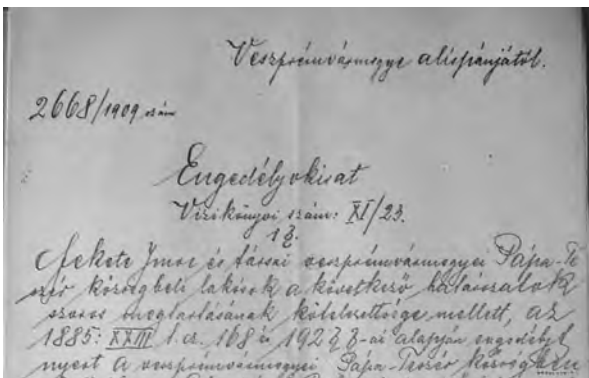 Veszprémvármegye alispánjától.
2668/1909 szám
Engedélyokirat
Vizikönyvi szám: XI/23.
13.
Fekete Imre és társai veszprémvármegyei Pápa-Te
szér községbeli lakosok a következő határozatok
szoros megtartásának kötelezettsége mellett, az
1885: XXIII t. cz. 168 és 192 § §-ai alapján engedélyt
nyert a veszprémvármegyei Pápa-Teszér községben